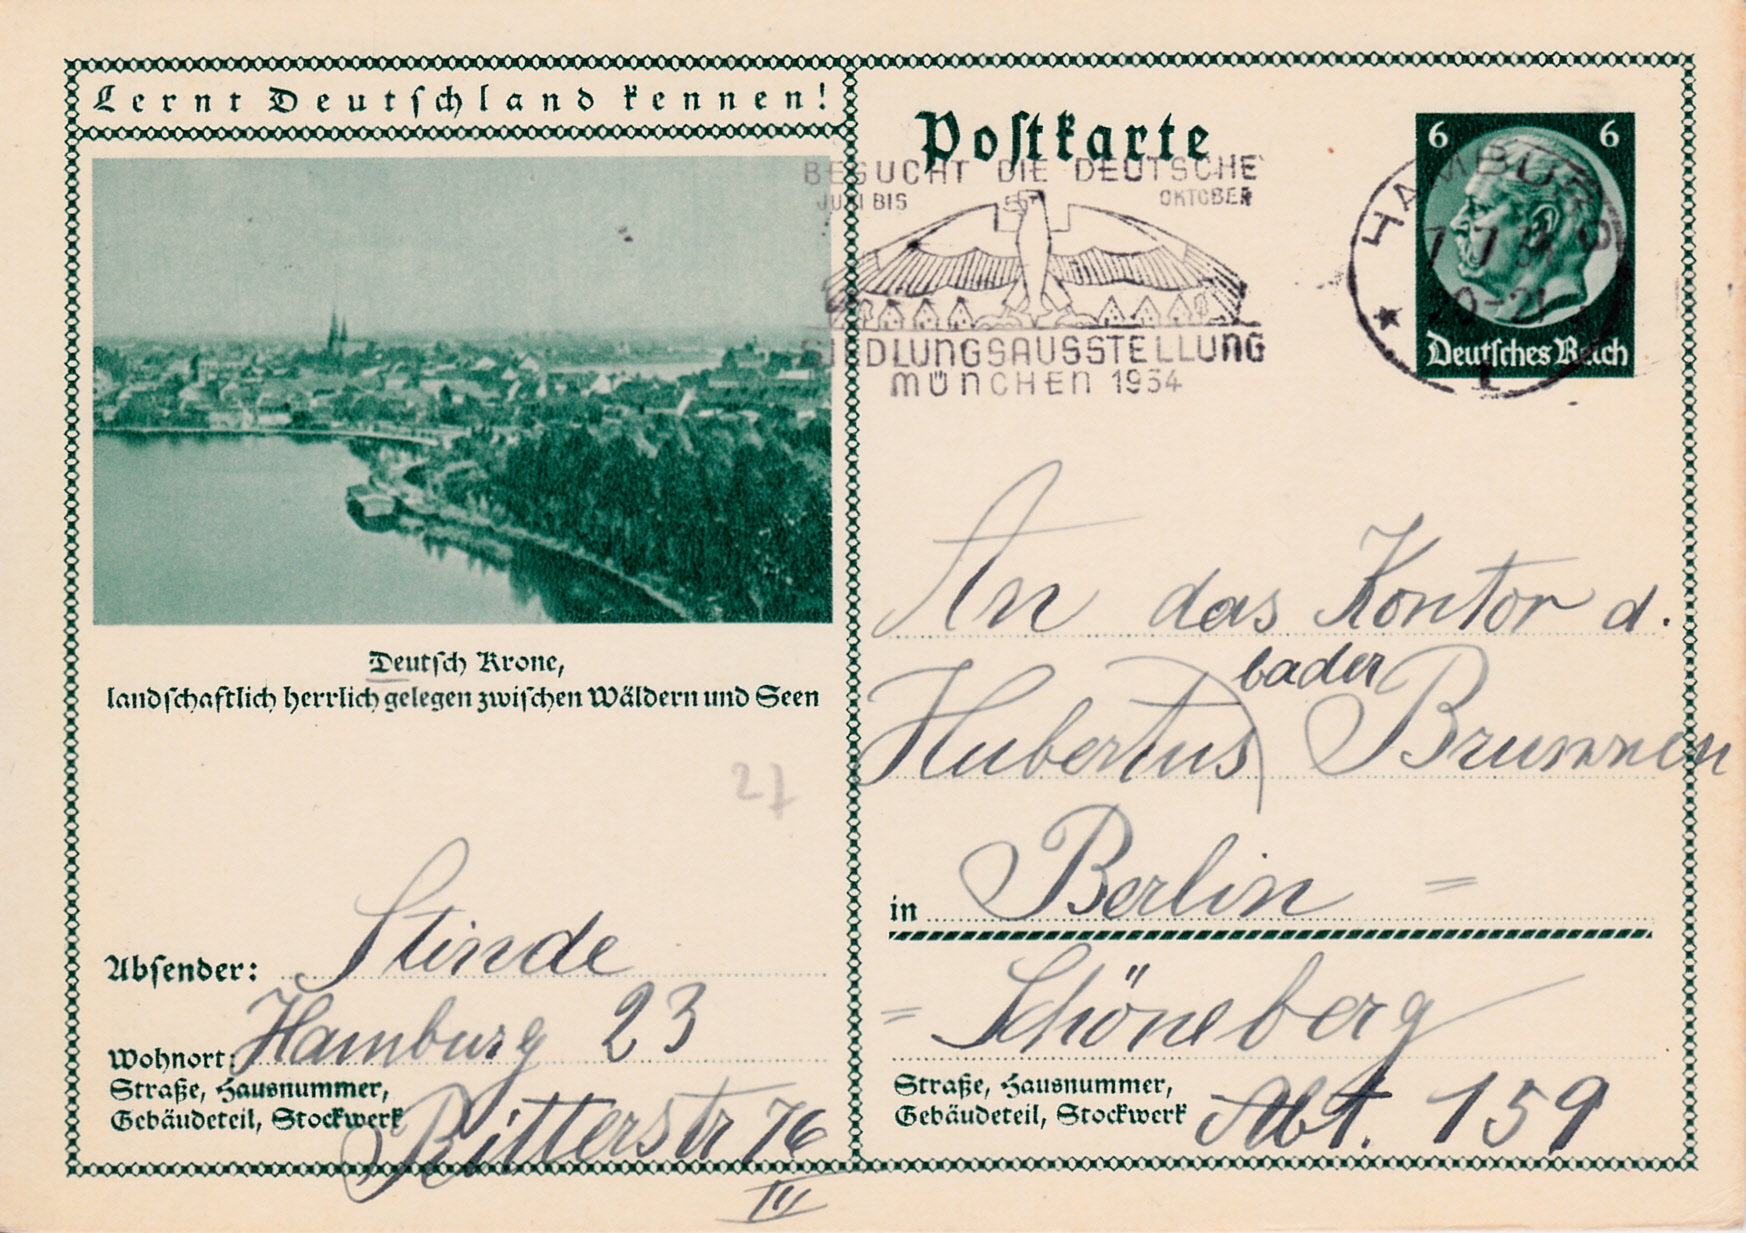 Lernt Deutschland kennen!
Deutsch Krone,
landschaftlich herrlich gelegen zwischen Wäldern und Seen
27
Absender: Stinde
Wohnort: Hamburg 23
Straße, Hausnummer,
Gebäudeteil, Stockwerk
Ritterstr 76
III
Postkarte
BESUCHT DIE DEUTSCHE
JUNI BIS OKTOBER
SIEDLUNGSAUSSTELLUNG
MÜNCHEN 1934
6 6
Deutsches Reich
HAMBURG
7.7.34
20-21
1
An das Kontor d.
bader
Hubertus Brunnen
in Berlin =
= Schöneberg
Straße, Hausnummer,
Gebäudeteil, Stockwerk
Abt. 159